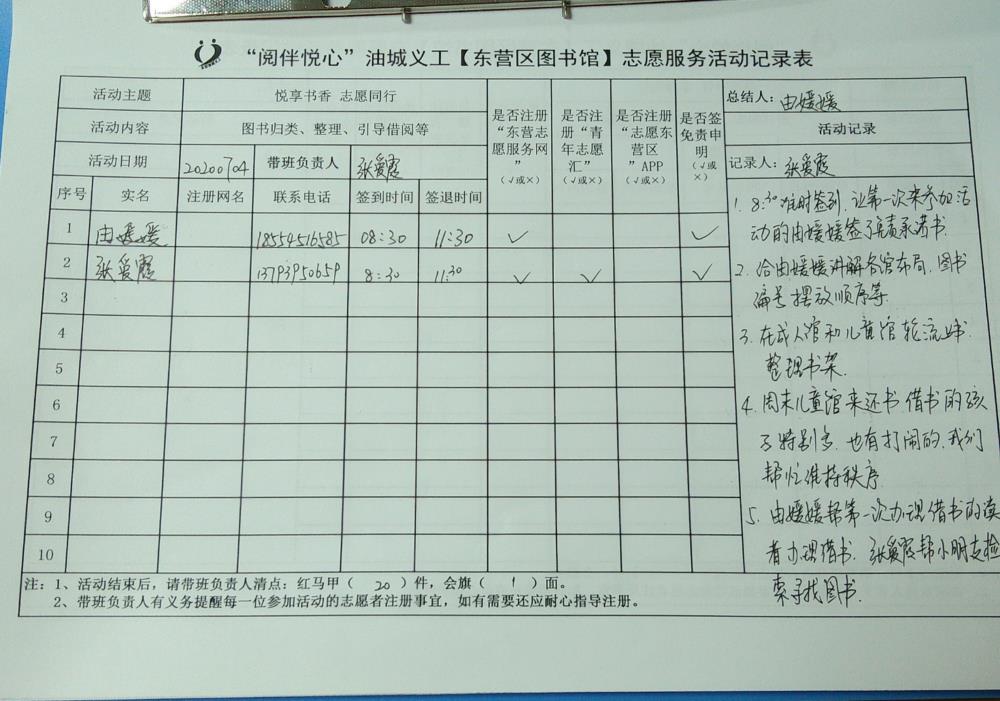 “阅伴悦心”油城义工【东营区图书馆】志愿服务活动记录表
活动主题 悦享书香 志愿同行
活动内容 图书归类、整理、引导借阅等
活动日期 20200704 带班负责人 张爱霞
序号 实名 注册网名 联系电话 签到时间 签退时间
是否注册“东营志愿服务网”(√或×)
是否注册“青年志愿汇”(√或×)
是否注册“志愿东营区”APP(√或×)
是否签免责申明(√或×)
1 由媛媛 18554516585 08:30 11:30 √ √
2 张爱霞 13793950659 8:30 11:30 √ √ √
3
4
5
6
7
8
9
10
总结人:由媛媛
活动记录
记录人:张爱霞
1. 8:30准时签到,让第一次来参加活
动的由媛媛签了免责承诺书.
2. 给由媛媛讲解各馆布局.图书
编号摆放顺序等.
3. 在成人馆和儿童馆轮流上书.
整理书架.
4. 周末儿童馆来还书借书的孩
子特别多.也有打闹的.我们
帮忙维持秩序.
5. 由媛媛帮第一次办理借书的读
者办理借书.张爱霞帮小朋友检
索寻找图书.
注:1、活动结束后,请带班负责人清点:红马甲(20)件,会旗(1)面。
2、带班负责人有义务提醒每一位参加活动的志愿者注册事宜,如有需要还应耐心指导注册。